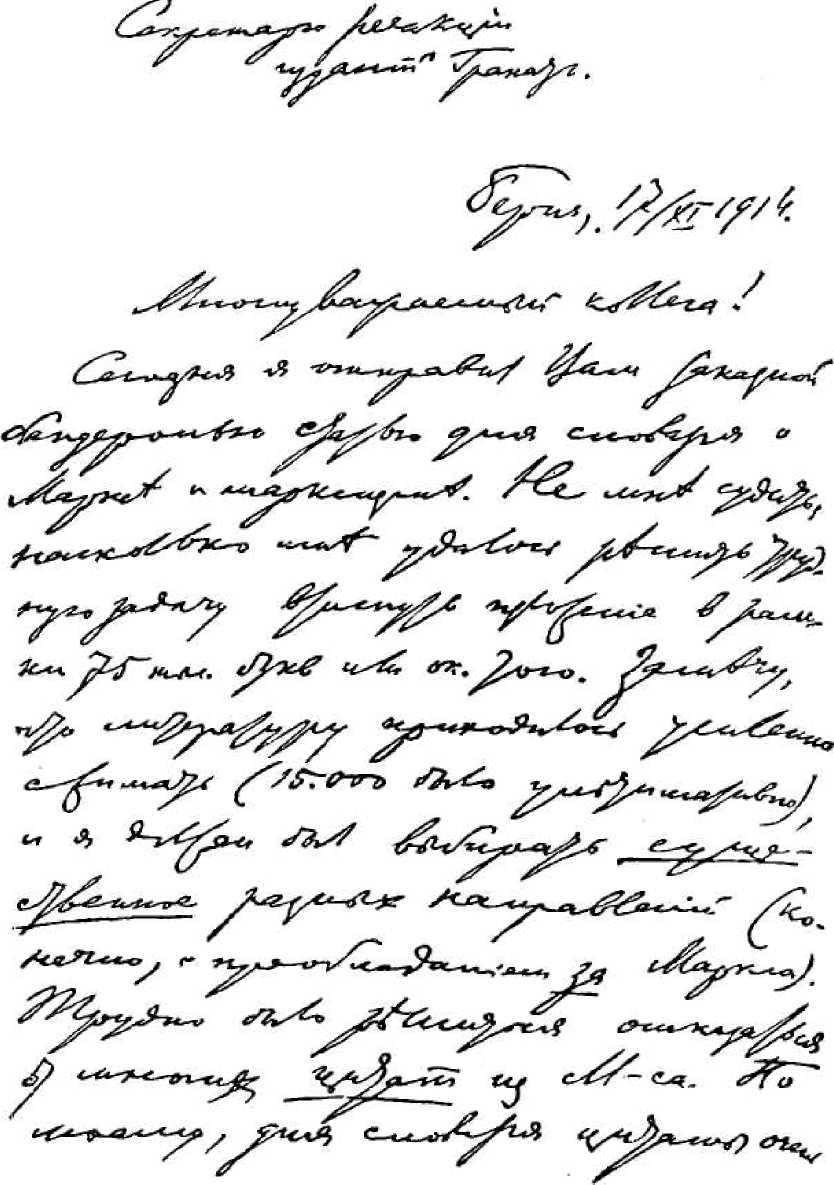 Секретарю редакціи
изданій Гранатъ.
Берн, 17/XI 1914.
Многоуважаемый коллега!
Сегодня я отправил Вам заказной
бандеролью статью для словаря о
Марксѣ и марксизмѣ. Не мнѣ судить,
насколько мнѣ удалось рѣшить труд-
ную задачу втиснуть изложеніе в рам-
ки 75 тыс. букв или ок. того. Замѣчу,
что литературу приходилось усиленно
сжимать (15.000 было ультимативно),
и я должен был выбирать суще-
ственное разных направленій (ко-
нечно, с преобладаніем за Маркса).
Трудно было рѣшиться отказаться
от многих цитат из М-са. По
моему, для словаря цитаты очень